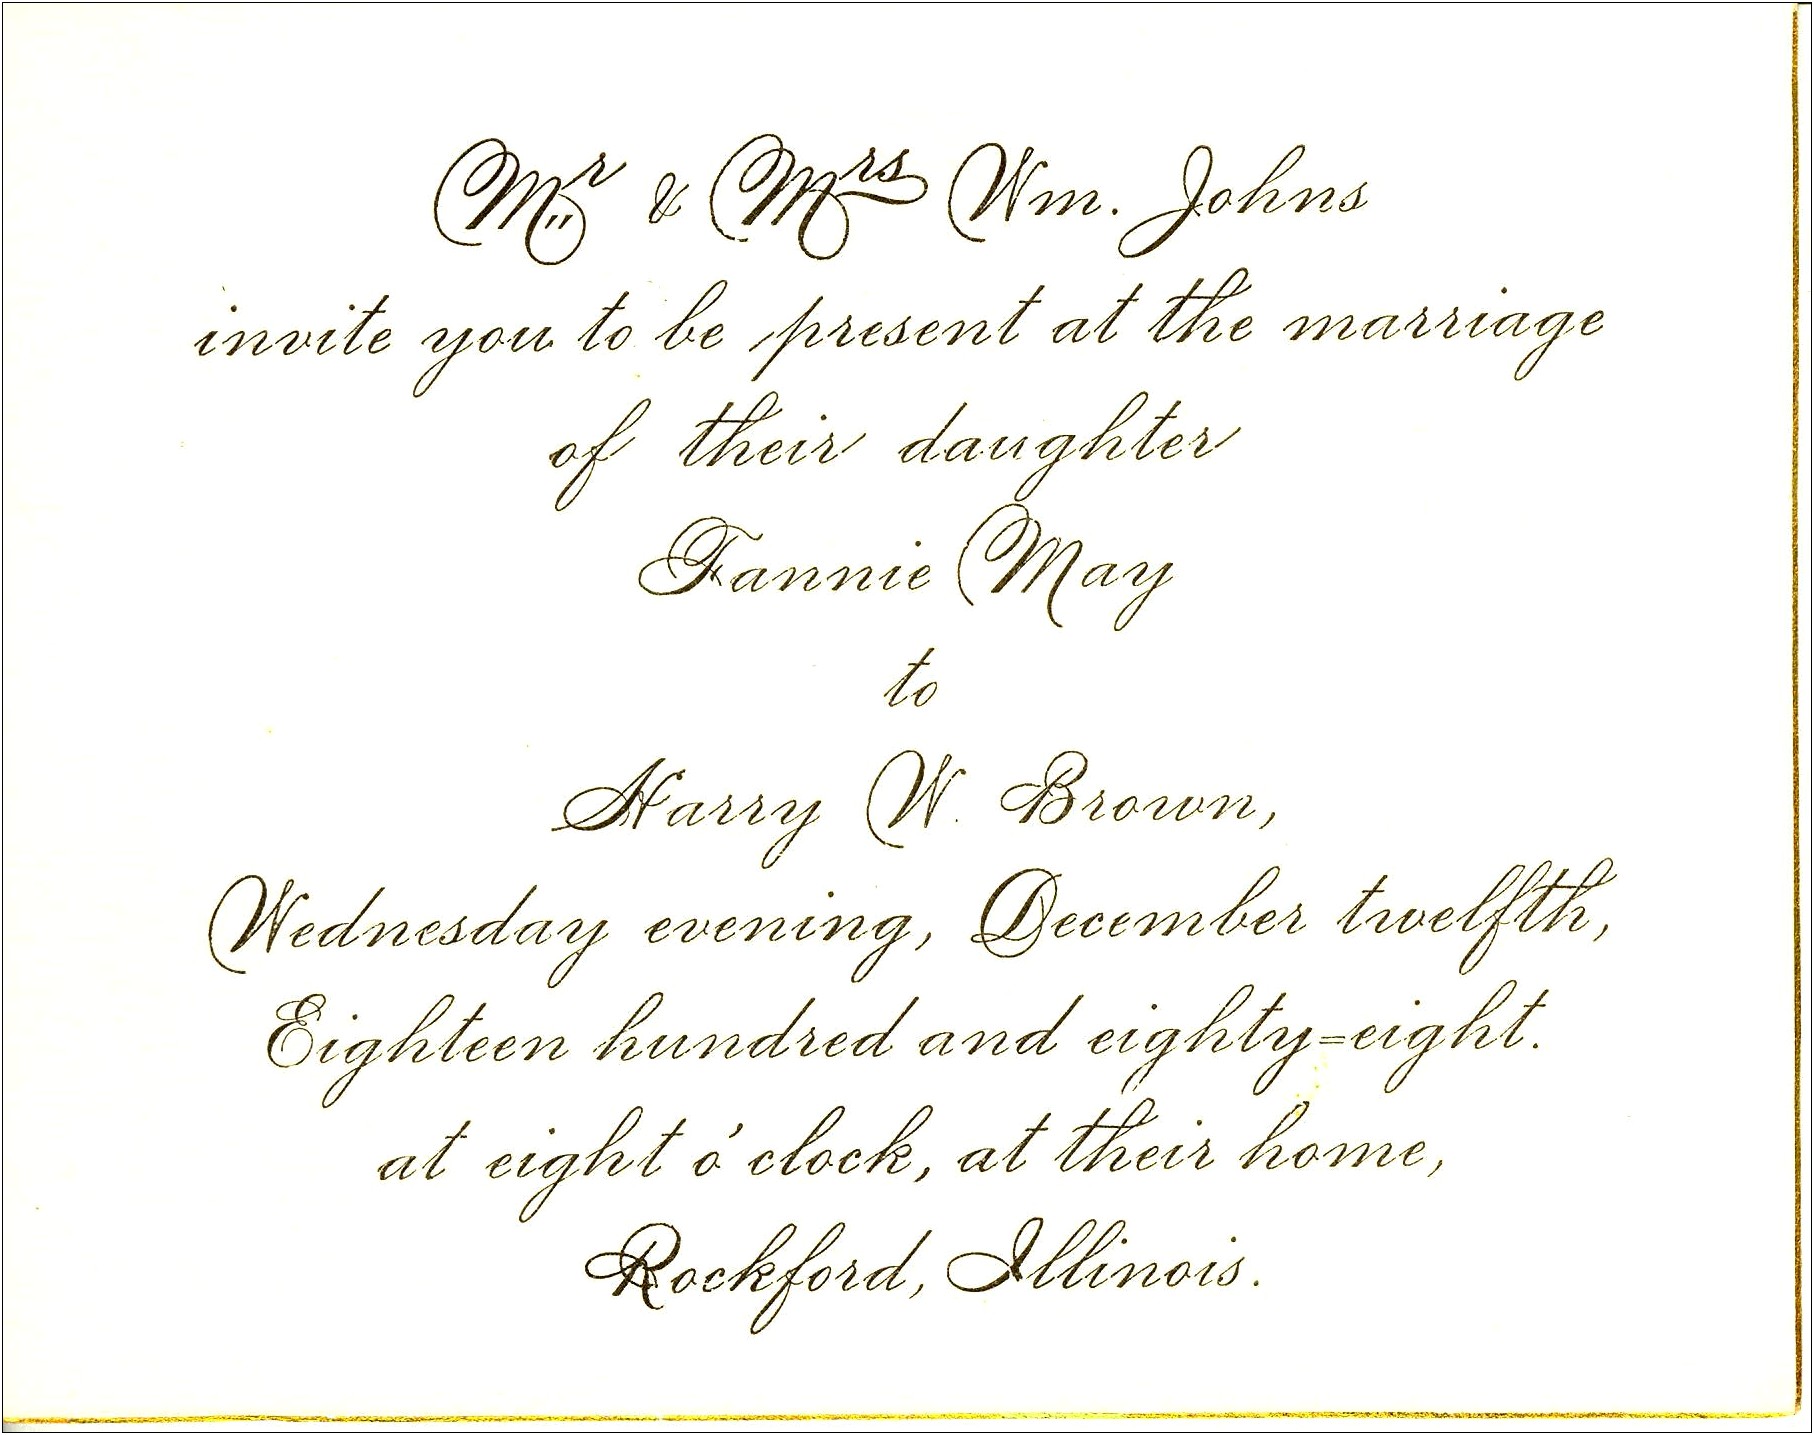 Mr & Mrs Wm. Johns
invite you to be present at the marriage
of their daughter
Fannie May
to
Harry W. Brown,
Wednesday evening, December twelfth,
Eighteen hundred and eighty=eight.
at eight o'clock, at their home,
Rockford, Illinois.